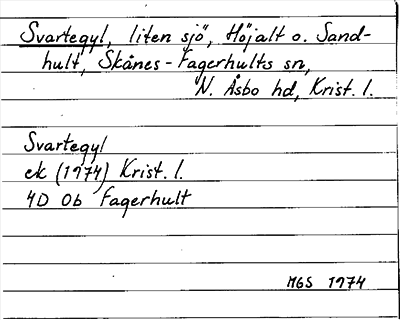 Svartegyl, liten sjö, Höjalt o. Sand-
hult, Skånes-Fagerhults sn,
N. Åsbo hd, Krist. l.
Svartegyl
ek (1974) Krist. l.
4D 0b Fagerhult
MGS 1974